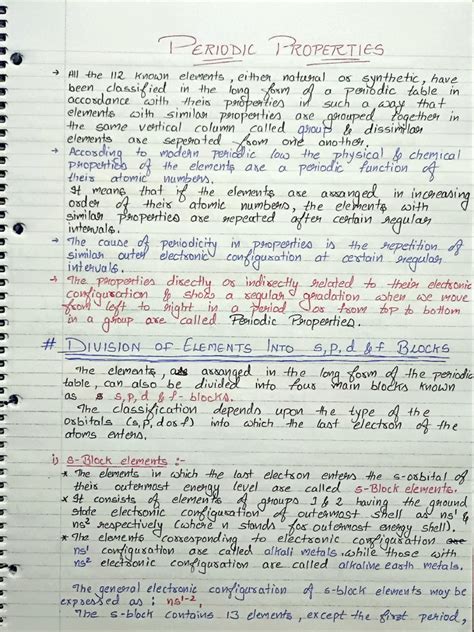 PERIODIC PROPERTIES
→ All the 112 known elements, either natural or synthetic, have
been classified in the long form of a periodic table in
accordance with their properties in such a way that
elements with similar properties are grouped together in
the same vertical column called group & dissimilar
elements are seperated from one another.
→ According to modern periodic law the physical & chemical
properties of the elements are a periodic function of
their atomic numbers.
It means that if the elements are arranged in increasing
order of their atomic numbers, the elements with
similar properties are repeated after certain regular
intervals.
→ The cause of periodicity in properties is the repetition of
similar outer electronic configuration at certain regular
intervals.
→ The properties directly or indirectly related to their electronic
configuration & show a regular gradation when we move
from left to right in a period or from top to bottom
in a group are called Periodic Properties.
# DIVISION OF ELEMENTS INTO s, p, d & f BLOCKS
The elements, as arranged in the long form of the periodic
table, can also be divided into four main blocks known
as s, p, d & f - blocks.
The classification depends upon the type of the
orbitals (s, p, d or f) into which the last electron of the
atoms enters.
i) s-Block elements :-
* The elements in which the last electron enters the s-orbital of
their outermost energy level are called s-Block elements.
* It consists of elements of groups 1 & 2 having the ground
state electronic configuration of outermost shell as ns¹ &
ns² respectively (where n stands for outermost energy shell).
* The elements corresponding to electronic configuration
ns¹ configuration are called alkali metals while those with
ns² electronic configuration are called alkaline earth metals.
The general electronic configuration of s-block elements may be
expressed as : ns¹⁻².
The s-block contains 13 elements, except the first period,